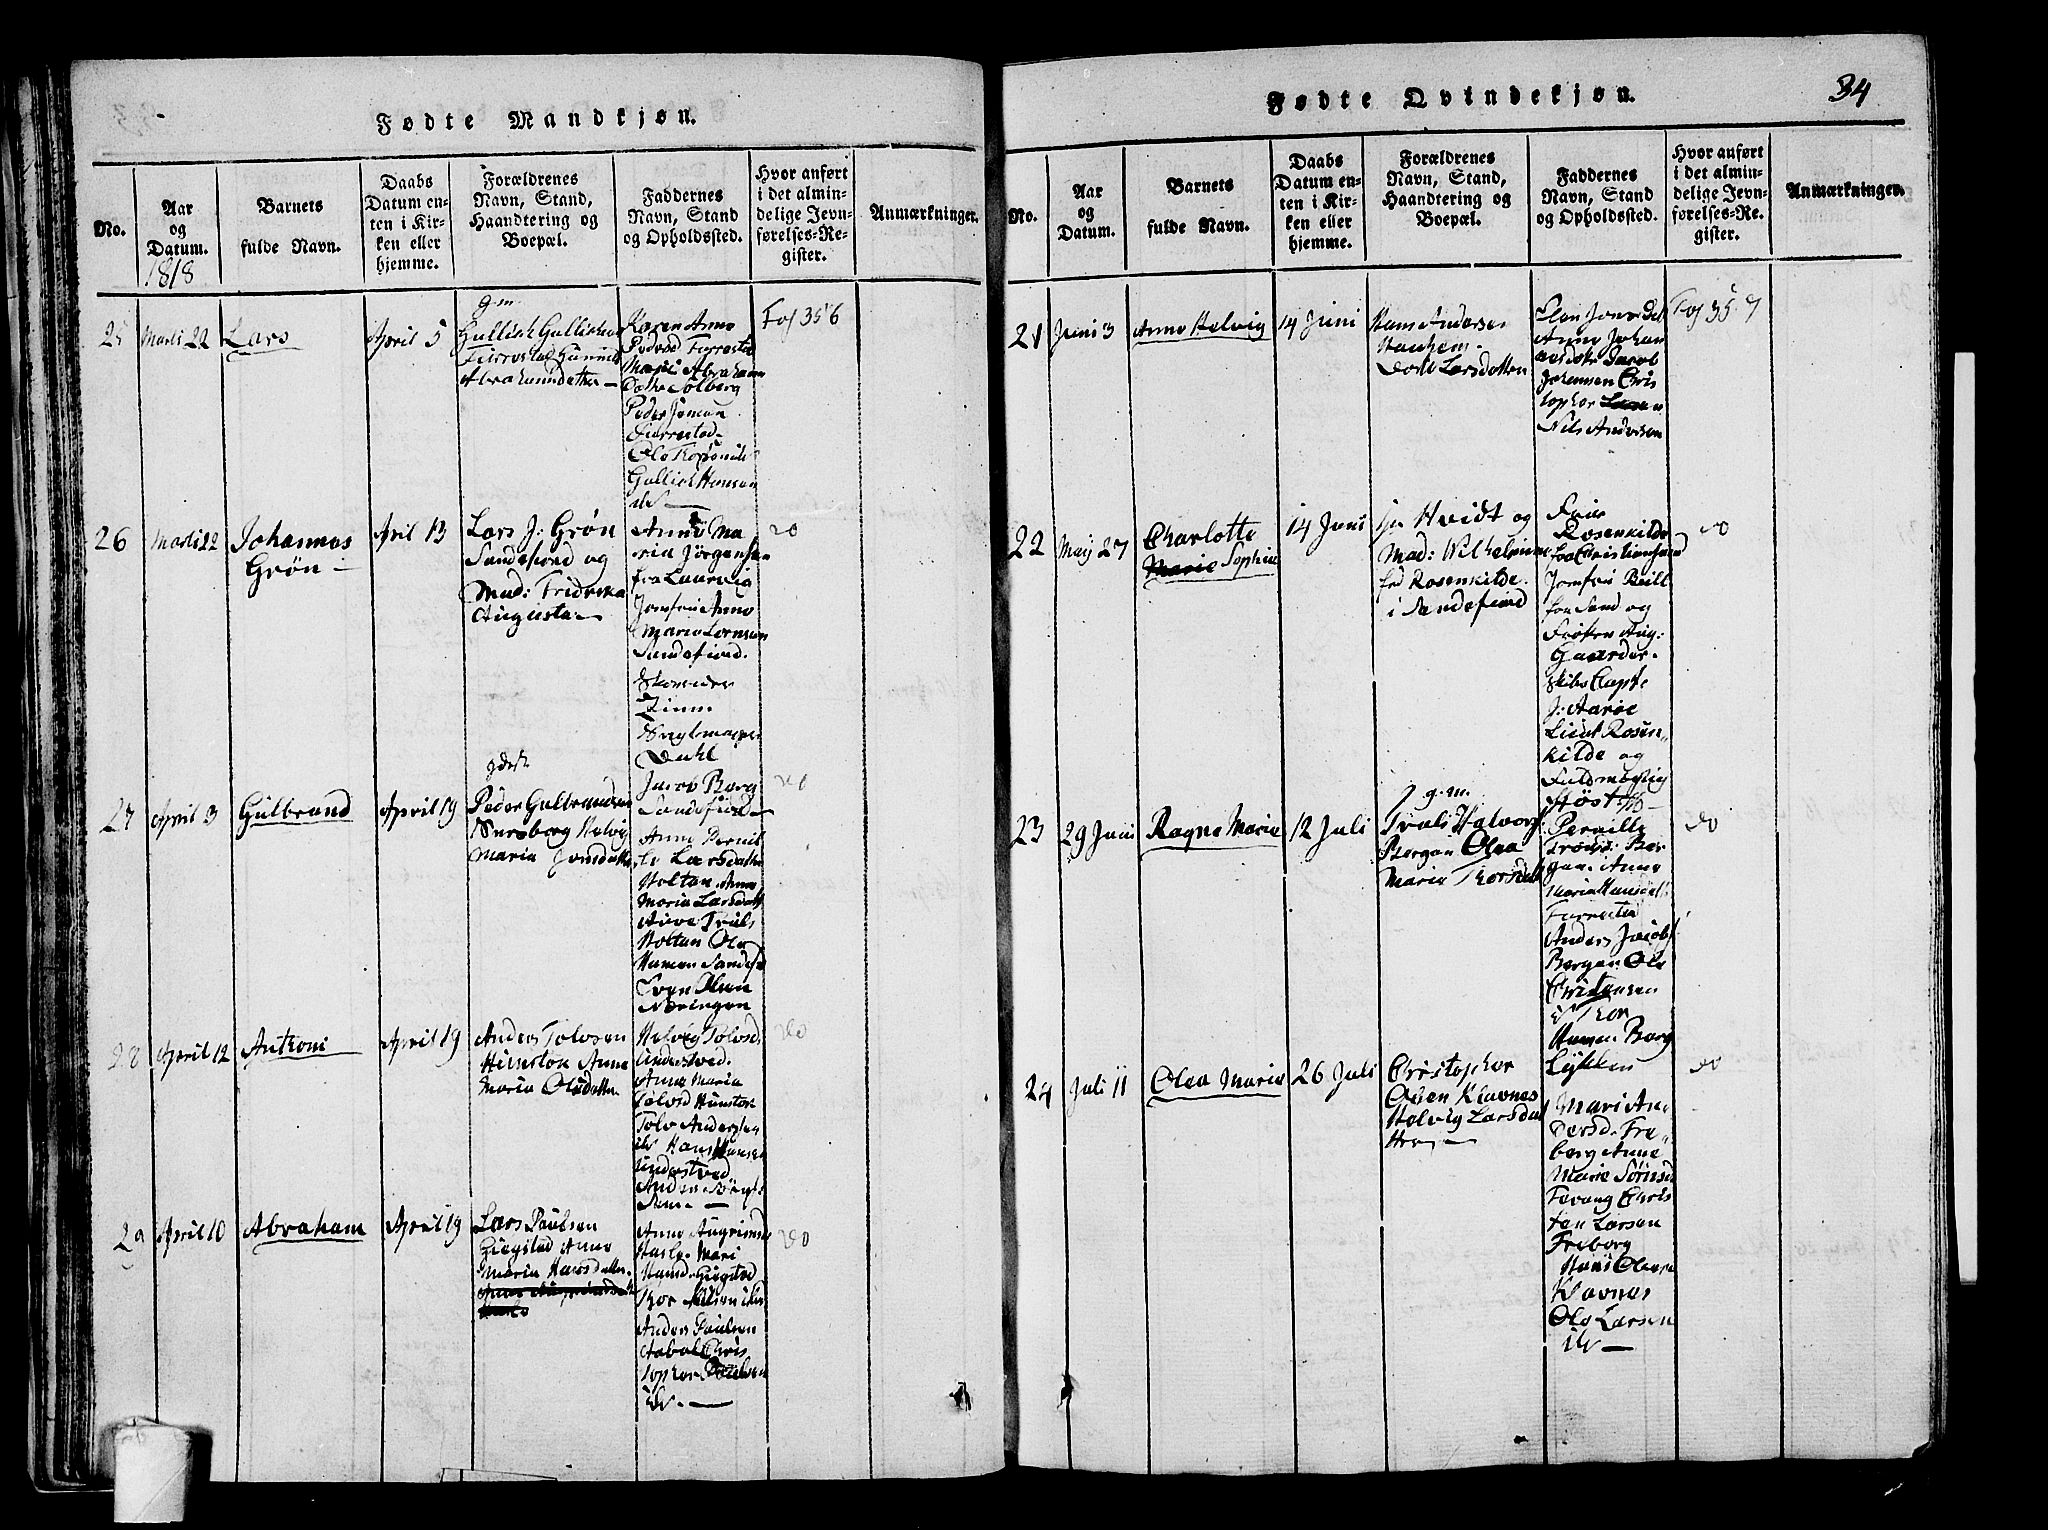 Fødte Mandkjøn.
No.
Aar
og
Datum.
1818
Barnets
fulde Navn.
Daabs
Datum en-
ten i Kir-
ken eller
hjemme.
Forældrenes
Navn, Stand,
Haandtering og
Boepæl.
Faddernes
Navn, Stand
og Opholdssted.
Hvor anført
i det almin-
delige Jevn-
førelses-Re-
gister.
Anmærkninger.
25
Marti 22
Lars
April 5
g.m.
Gullich Gullichsen
Furrestad Gunnild
Abrahamsdatter
Karen Anne
Pedersd Furrestad
Mari Abrahams
Datter Solberg
Peder Jonsen
Furrestad
Ole
Gullich Hansen
ib
Fol 356
26
Marti 22
Johannes
Grøn
April 13
Lars J: Grøn
Sandefiord og
Mad: Fridrika
Augusta
Anne Ma
ria Jørgensen
fra Laurvig
Jomfru Anne
Marie Lorensen
Sandefiord.
Dahl
do
27
April 3
Gulbrand
April 19
Peder Gulbrandsen
Helvig
Maria Jonsdatter
Jacob Borg
Sandefiord
Anne Pernil
le Larsdatter
Holtan. Anne
Maria Larsdatt
Truls
Holtan Ole
Hansen Sandefd
Sven Olsen
do
28
April 12
Antroni
April 19
Anders Tolvsen
Himstok Anne
Maria Olsdatter
Helvig Tolvsd.
Understved.
Anne Maria
Tolvsd Himstok
Tolv Andersen
ib Hans Hansen
Understved
do
29
April 10
Abraham
April 19
Lars Paulsen
Giegstad Anne
Maria Hansdatter
Anne
Hasle. Mari
Hansd. Giegstad
Thor Nilsen ib
Anders Paulsen
Chris
topher Paulsen
ib.
do
Fødte Qvindekjøn.
34
No.
Aar
og
Datum.
Barnets
fulde Navn.
Daabs
Datum en-
ten i Kir-
ken eller
hjemme.
Forældrenes
Navn, Stand,
Haandtering og
Boepæl.
Faddernes
Navn, Stand
og Opholdssted.
Hvor anført
i det almin-
delige Jevn-
førelses-Re-
gister.
Anmærkninger.
21
Juni 3
Anne Helvig
14 Juni
Hans Andersen
Haukem
Dorte Larsdatter
Elen Jonsdat
Anne Johan
nesdatter Jacob
Johansen Chris
topher Larsen
Nils Andersen
Fol 357
22
Maij 27
Charlotte
Marie Sophie
14 Juni
Hr Hvidt og
Mad: Wilhelmine
fød Rosenkilde
i Sandefiord
Frue
Rosenkilde
fra Christiansand
Jomfru Buill
fra Sand og
Frøken Aug:
Gaarder.
Skibs Capt
J: Aarøe
Lieut Rosen
kilde og
Fuldmægtig
Høst
do
23
29 Juni
Ragne Marie
12 Juli
g.m.
Truls Halvors
Bergan Olea
Maria Thorsdatt
Pernille
Trulsd: Ber
gan. Anne
Maria Hansdat
Furrestad
Anders Jacobs
Bergan Ole
Christensen
ib Thor
Hansen Borg
do
24
Juli 11
Olea Marie
26 Juli
Christopher
Olsen Klavnes
Helvig Larsdat
ter
Lykken
Mari An
dersd. Fre
berg Anne
Marie Sørensd
Fevang Chris
ten Larsen
Freberg
Hans Olsen
Klavnes
Ole Larsen
ib
do